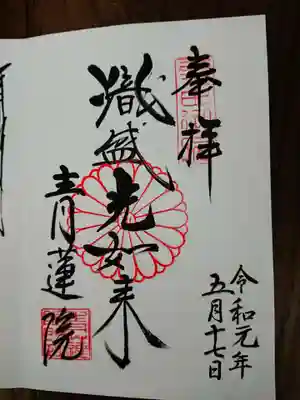 奉拝
令和元年
五月十七日
熾盛光如来
青蓮院